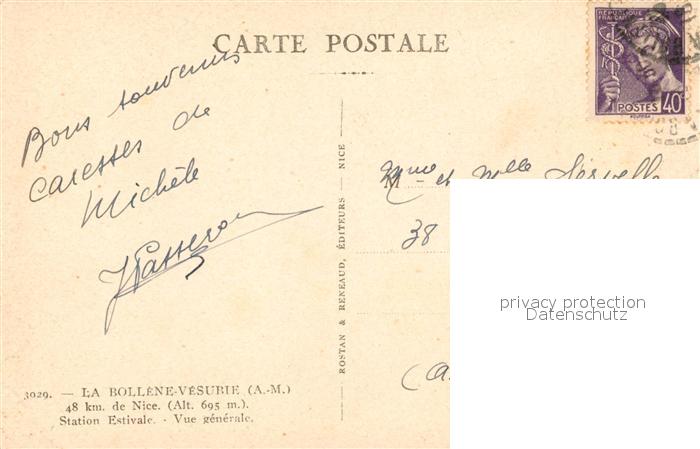 CARTE POSTALE
RÉPUBLIQUE
FRANÇAISE
POSTES 40
Bons souvenirs
caresses de
Michèle
JPasseron
ROSTAN & RENEAUD, ÉDITEURS — NICE
Mme et Mlle
38
(A.
privacy protection
Datenschutz
3029. — LA BOLLÈNE-VÉSUBIE (A.-M.)
48 km. de Nice. (Alt. 695 m.).
Station Estivale. - Vue générale.